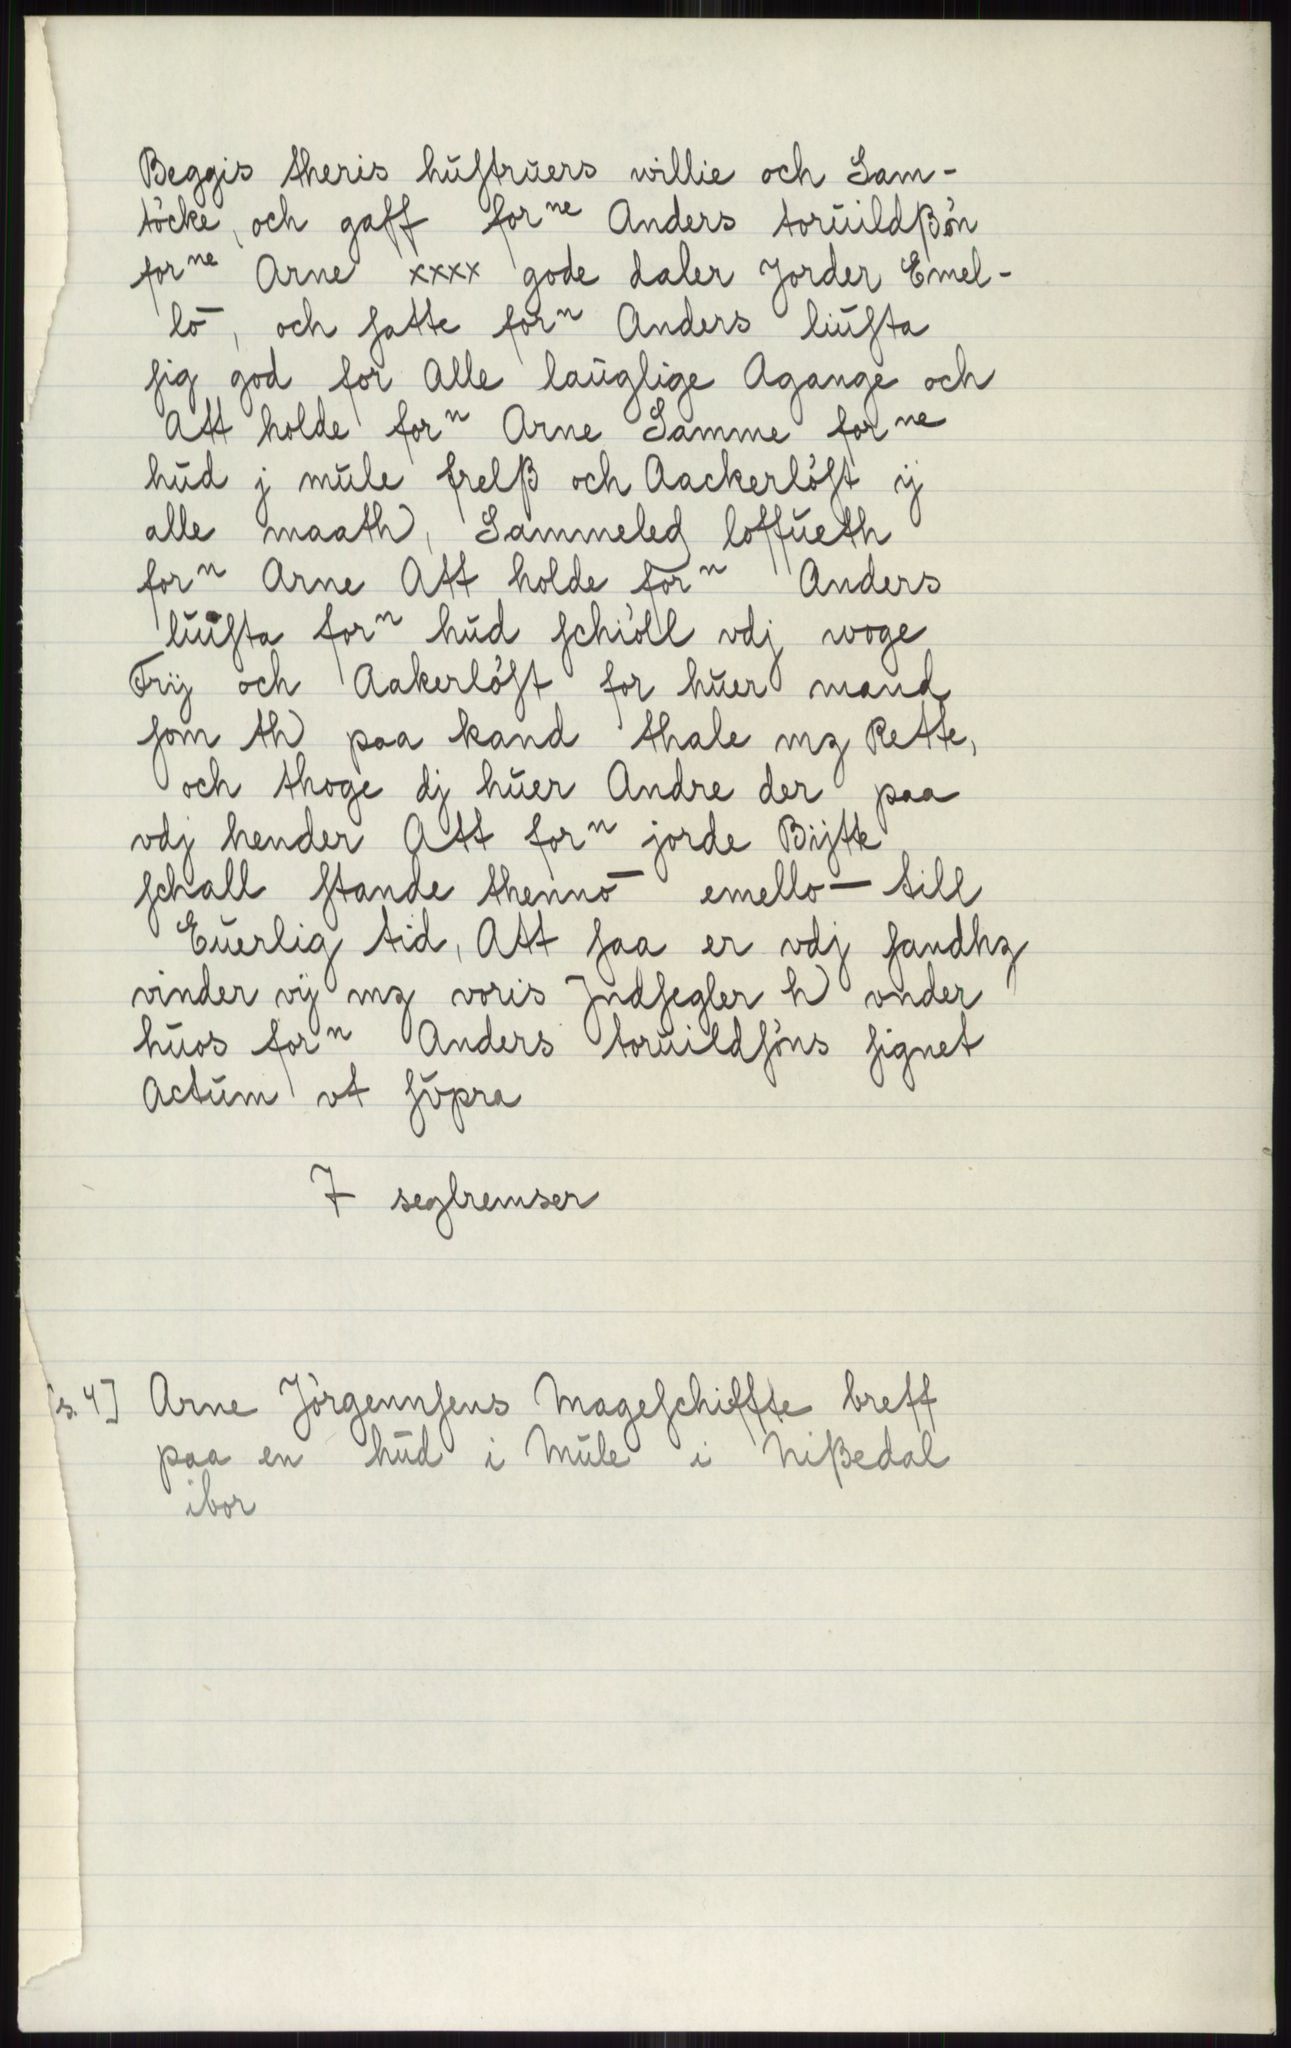 Beggis theris hustruers willie och Sam-
töcke, och gaff for<sup>ne</sup> Anders toruildßön
for<sup>ne</sup> Arne xxxx gode daler Jorder Emel-
lō, och satte for<sup>n</sup> Anders liusta
sig god for Alle lauglige Agange och
Att holde for<sup>n</sup> Arne Samme for<sup>ne</sup>
hud j mule frelß och Aackerlöst ij
alle maath), Sammeled loffueth
for<sup>n</sup> Arne Att holde for<sup>n</sup> Anders
liusta for<sup>n</sup> hud schiöll vdj woge
Frij och Aakerlöst for huer mand
som th) paa kand thale mz Rette,
och thoge dj huer Andre der paa
vdj hender Att for<sup>n</sup> jorde Bijtte
schall stande thennō emello— till
Euerlig tid, Att saa er vdj sandhz
vinder vij mz voris Jndsegler h) vnder
huos for<sup>n</sup> Anders toruildsöns signet
Actum vt supra
7 seglremser
[s. 4] Arne Jörgennsens Mageschiffte breff
paa en hud i Mule i Nißedal
ibor